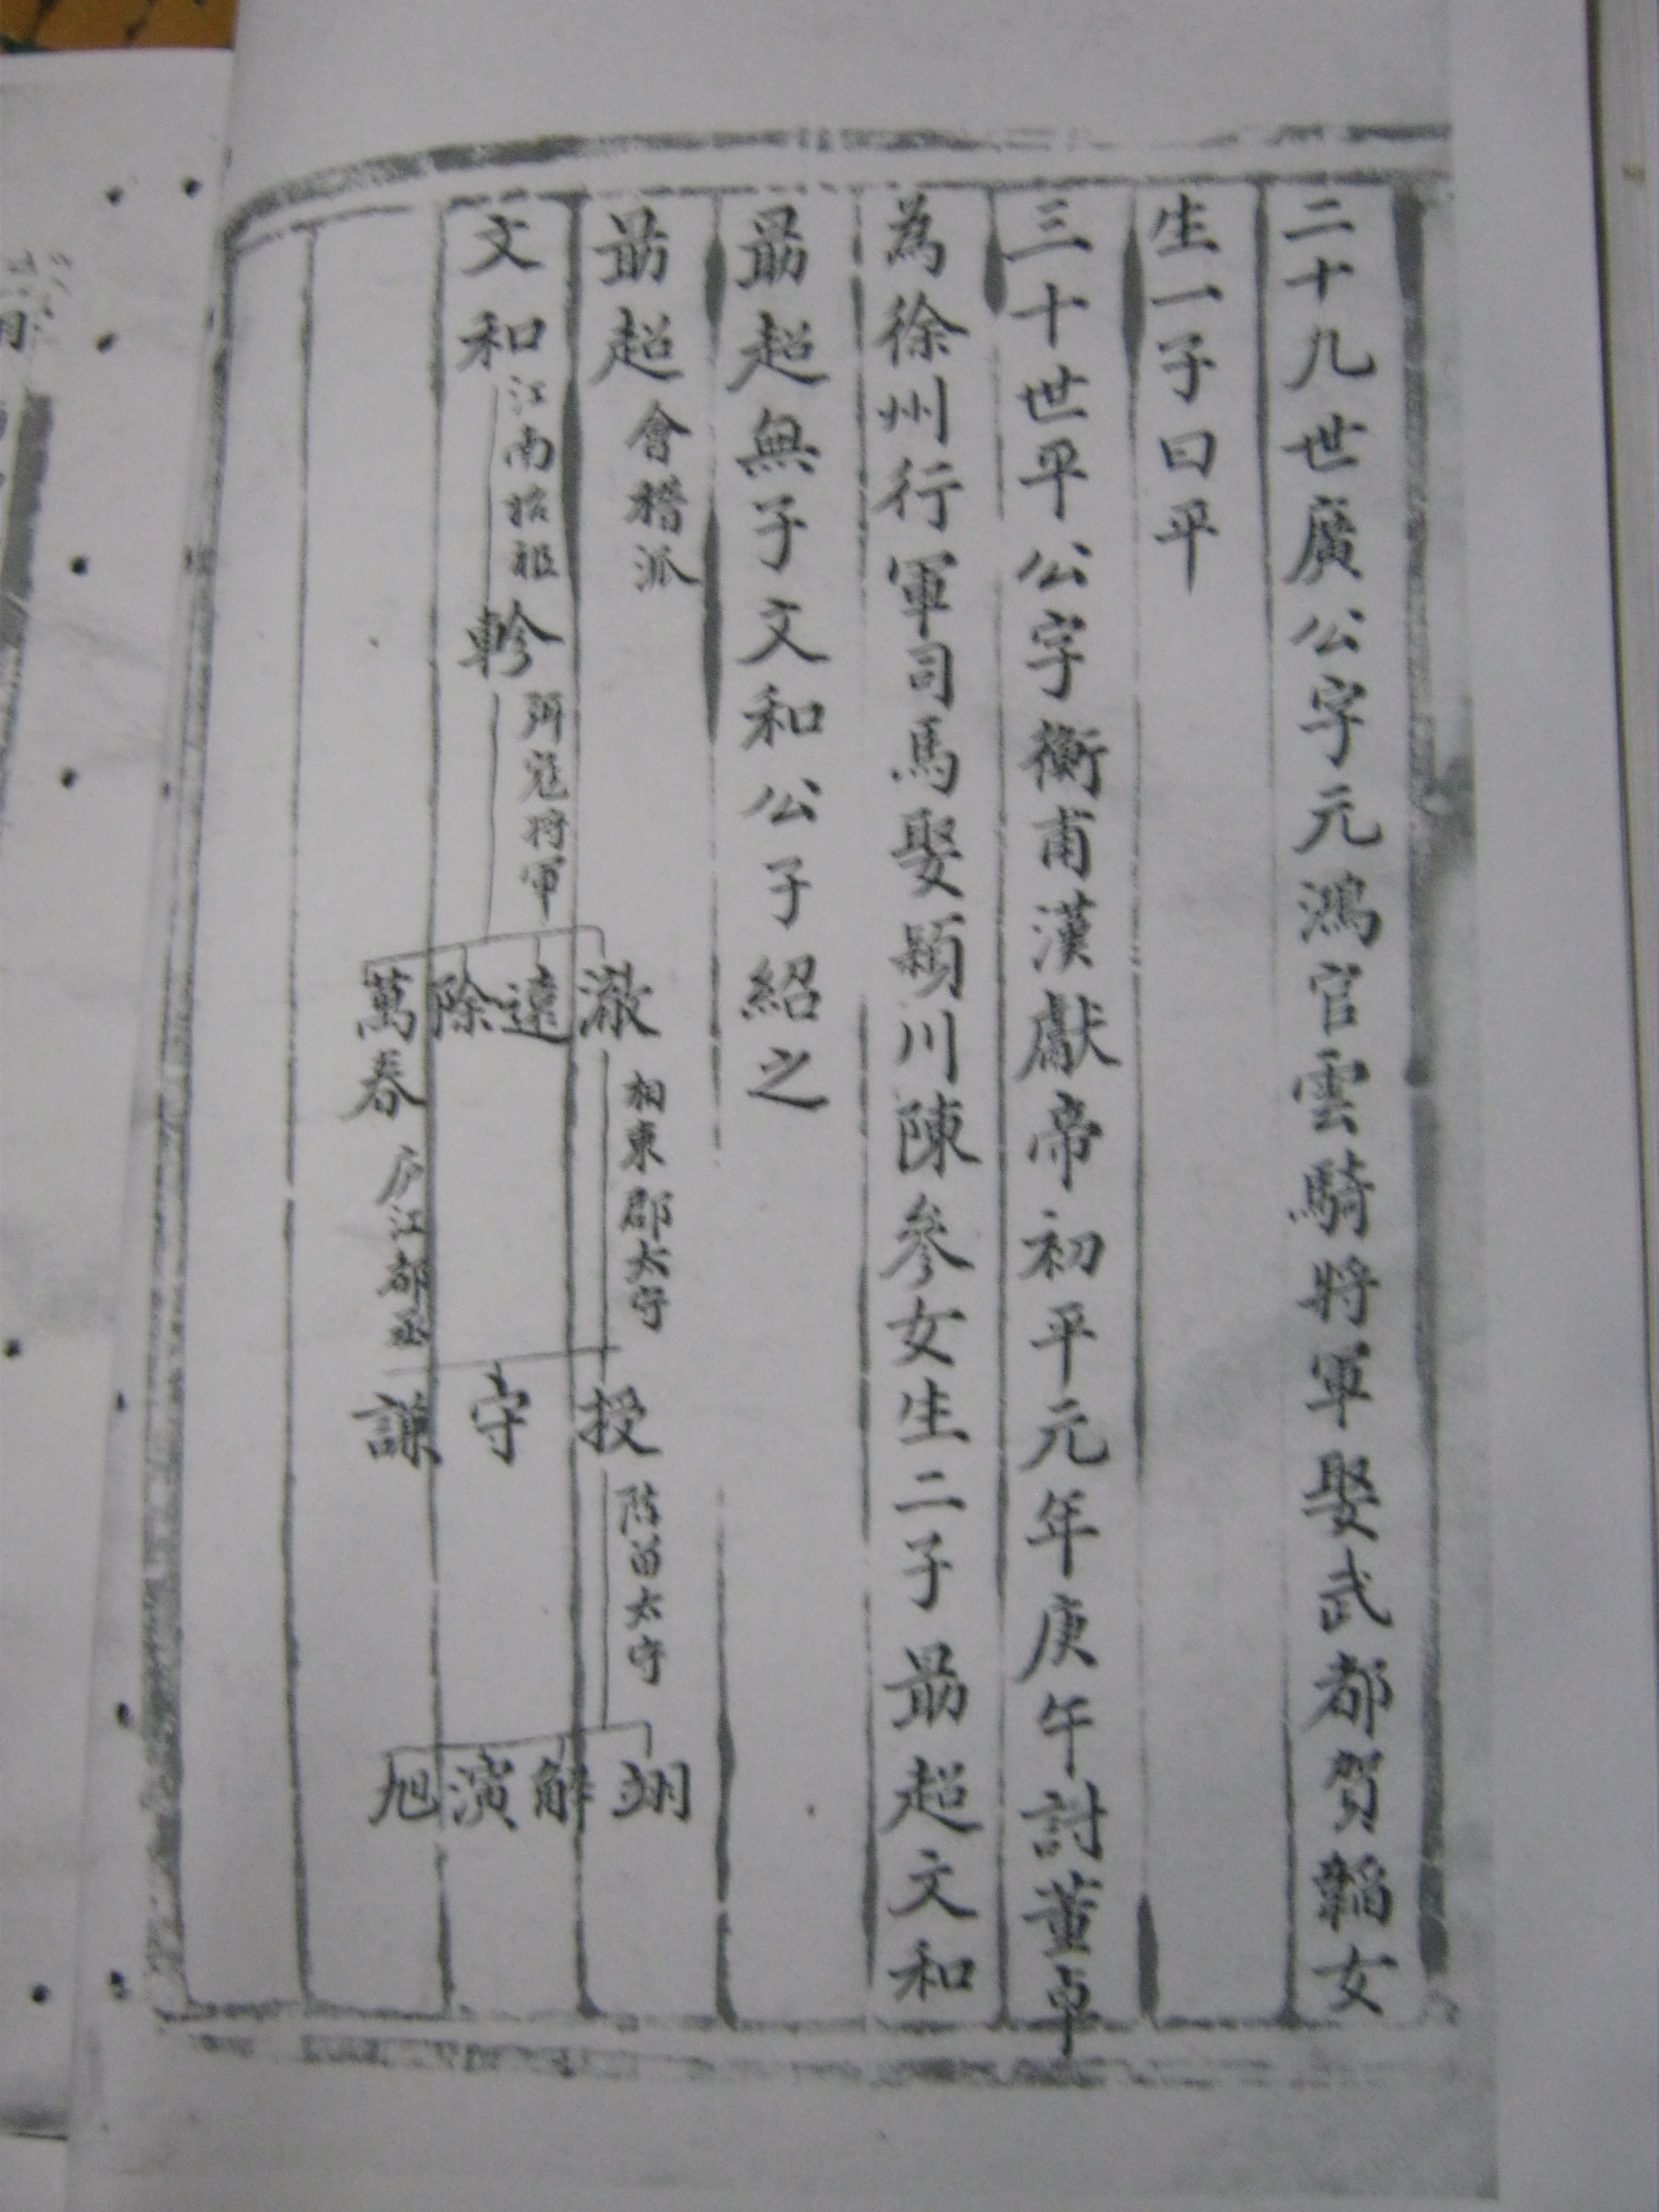 二十九世廣公字元鴻官雲騎將軍娶武都賀韜女
生一子曰平
三十世平公字衡甫漢獻帝初平元年庚午討董卓
為徐州行軍司馬娶穎川陳參女生二子勗超文和
勗超無子文和公子紹之
勗超 會稽派
文和 江南始祖 軫 弭寇將軍
澈 遠 除 萬春
相東郡太守
庐江都丞
授 守 謙
陈留太守
翊 解 演 旭